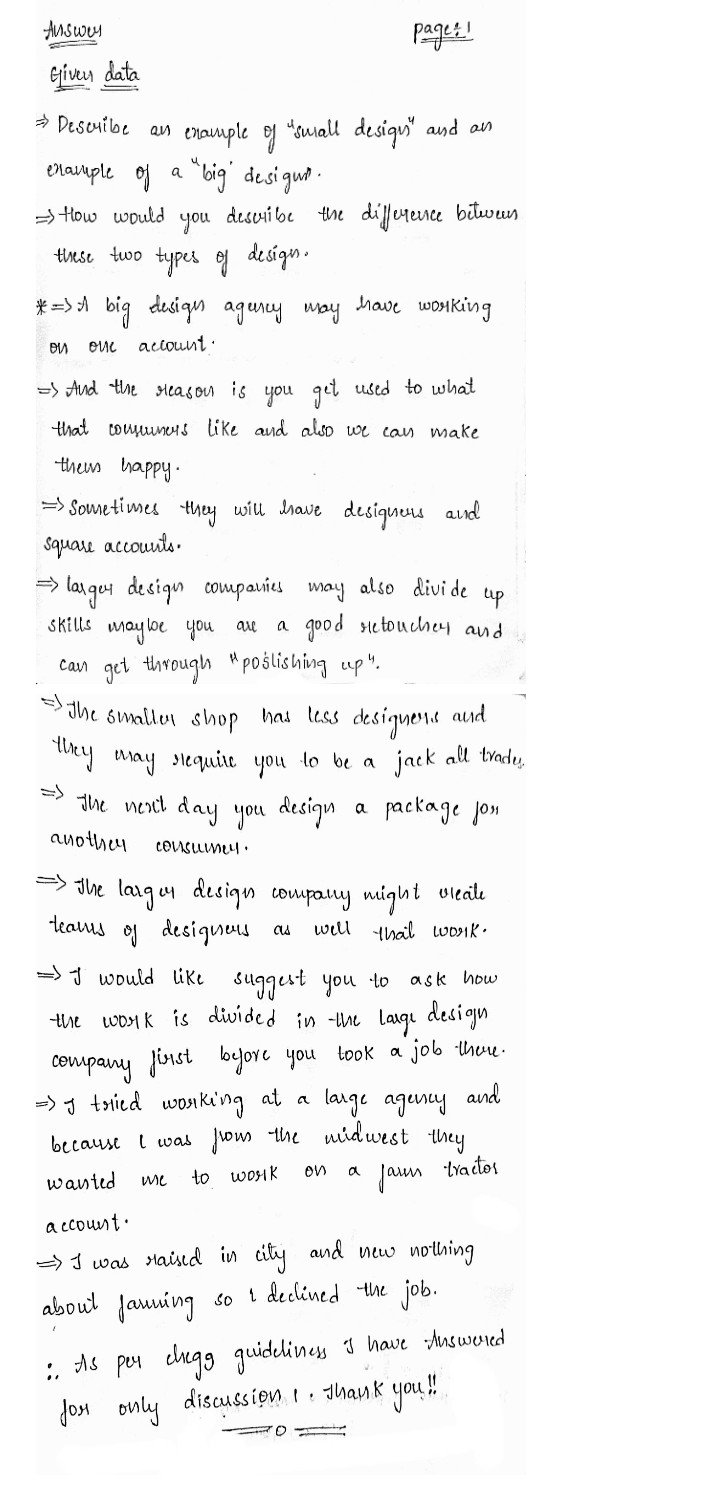 Answer page:1
Given data
⇒ Describe an example of "small design" and an
example of a "big" design.
⇒ How would you describe the difference between
these two types of design.
*⇒ A big design agency may have working
on one account.
⇒ And the reason is you get used to what
that consumers like and also we can make
them happy.
⇒ Sometimes they will have designers and
square accounts.
⇒ larger design companies may also divide up
skills maybe you are a good retoucher and
can get through "poslishing up".
⇒ The smaller shop has less designers and
they may require you to be a jack all trades.
⇒ The next day you design a package for
another consumer.
⇒ The larger design company might create
teams of designers as well that work.
⇒ I would like suggest you to ask how
the work is divided in the large design
company first before you took a job there.
⇒ I tried working at a large agency and
because I was from the midwest they
wanted me to work on a farm tractor
account.
⇒ I was raised in city and new nothing
about farming so I declined the job.
∴ As per chegg guidelines I have Answered
for only discussion 1. Thank you!!